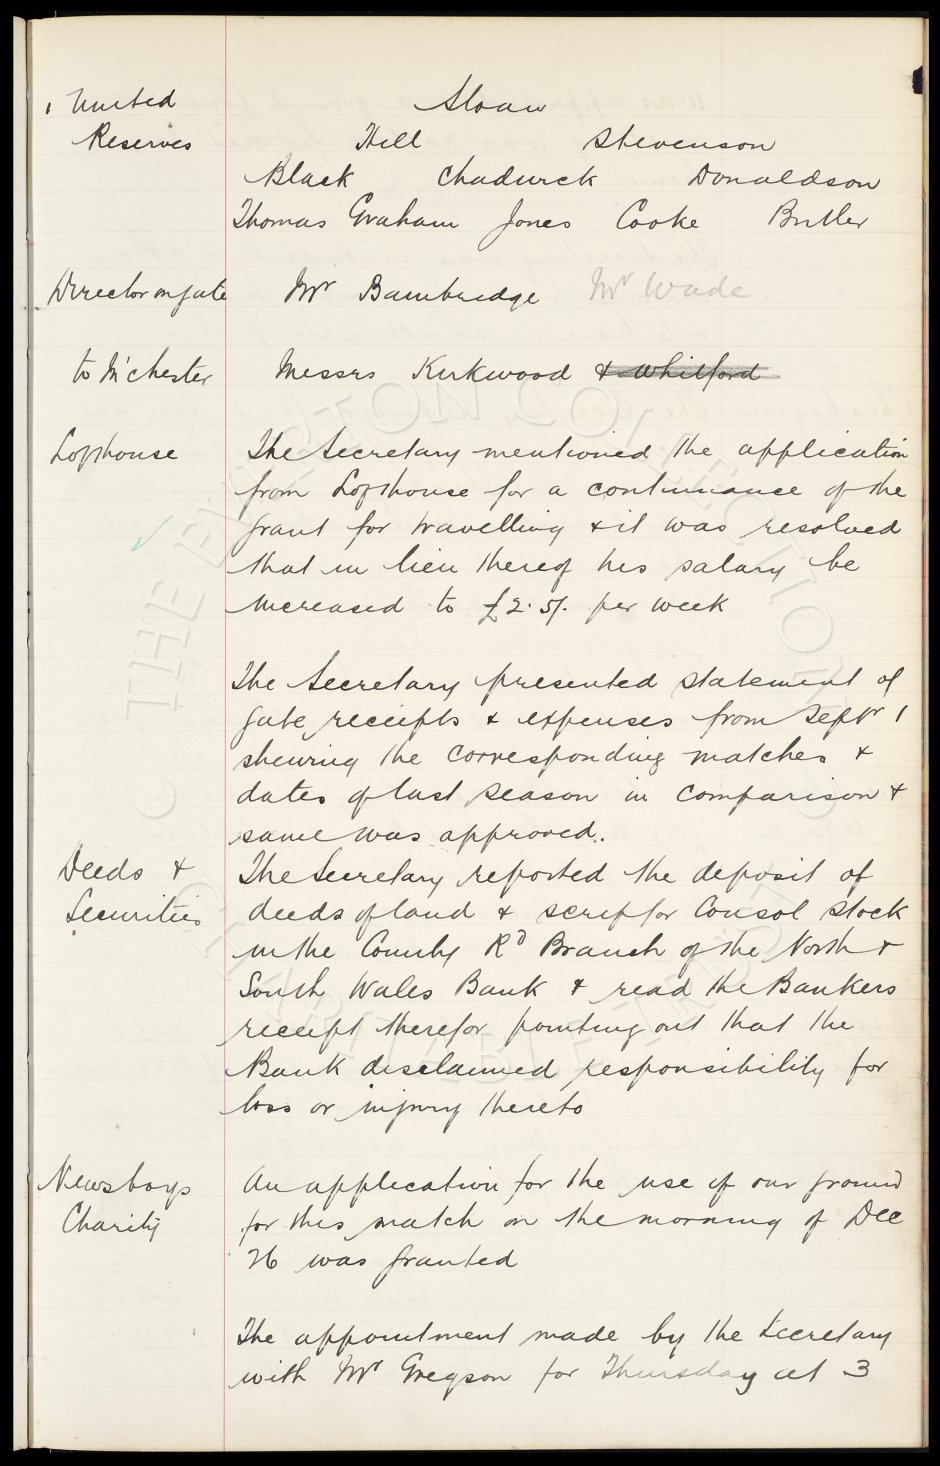 United Sloan
Reserves Hill Stevenson
Black Chadwick Donaldson
Thomas Graham Jones Cooke Butler
Director on gate Mr Bambridge Mr Wade
to M'chester Messrs Kirkwood & Whitford
Lofthouse The Secretary mentioned the application
from Lofthouse for a continuance of the
grant for travelling & it was resolved
that in lieu thereof his salary be
increased to £2.5/. per week
The Secretary presented statement of
gate receipts & expenses from Septr 1
shewing the corresponding matches &
dates of last season in comparison &
same was approved.
Deeds & The Secretary reported the deposit of
Securities deeds of land & scrip for Consol Stock
in the County Rd Branch of the North &
South Wales Bank & read the Bankers
receipt therefor pointing out that the
Bank disclaimed responsibility for
loss or injury thereto
Newsboys An application for the use of our ground
Charity for this match on the morning of Dec
26 was granted
The appointment made by the Secretary
with Mr Gregson for Thursday at 3